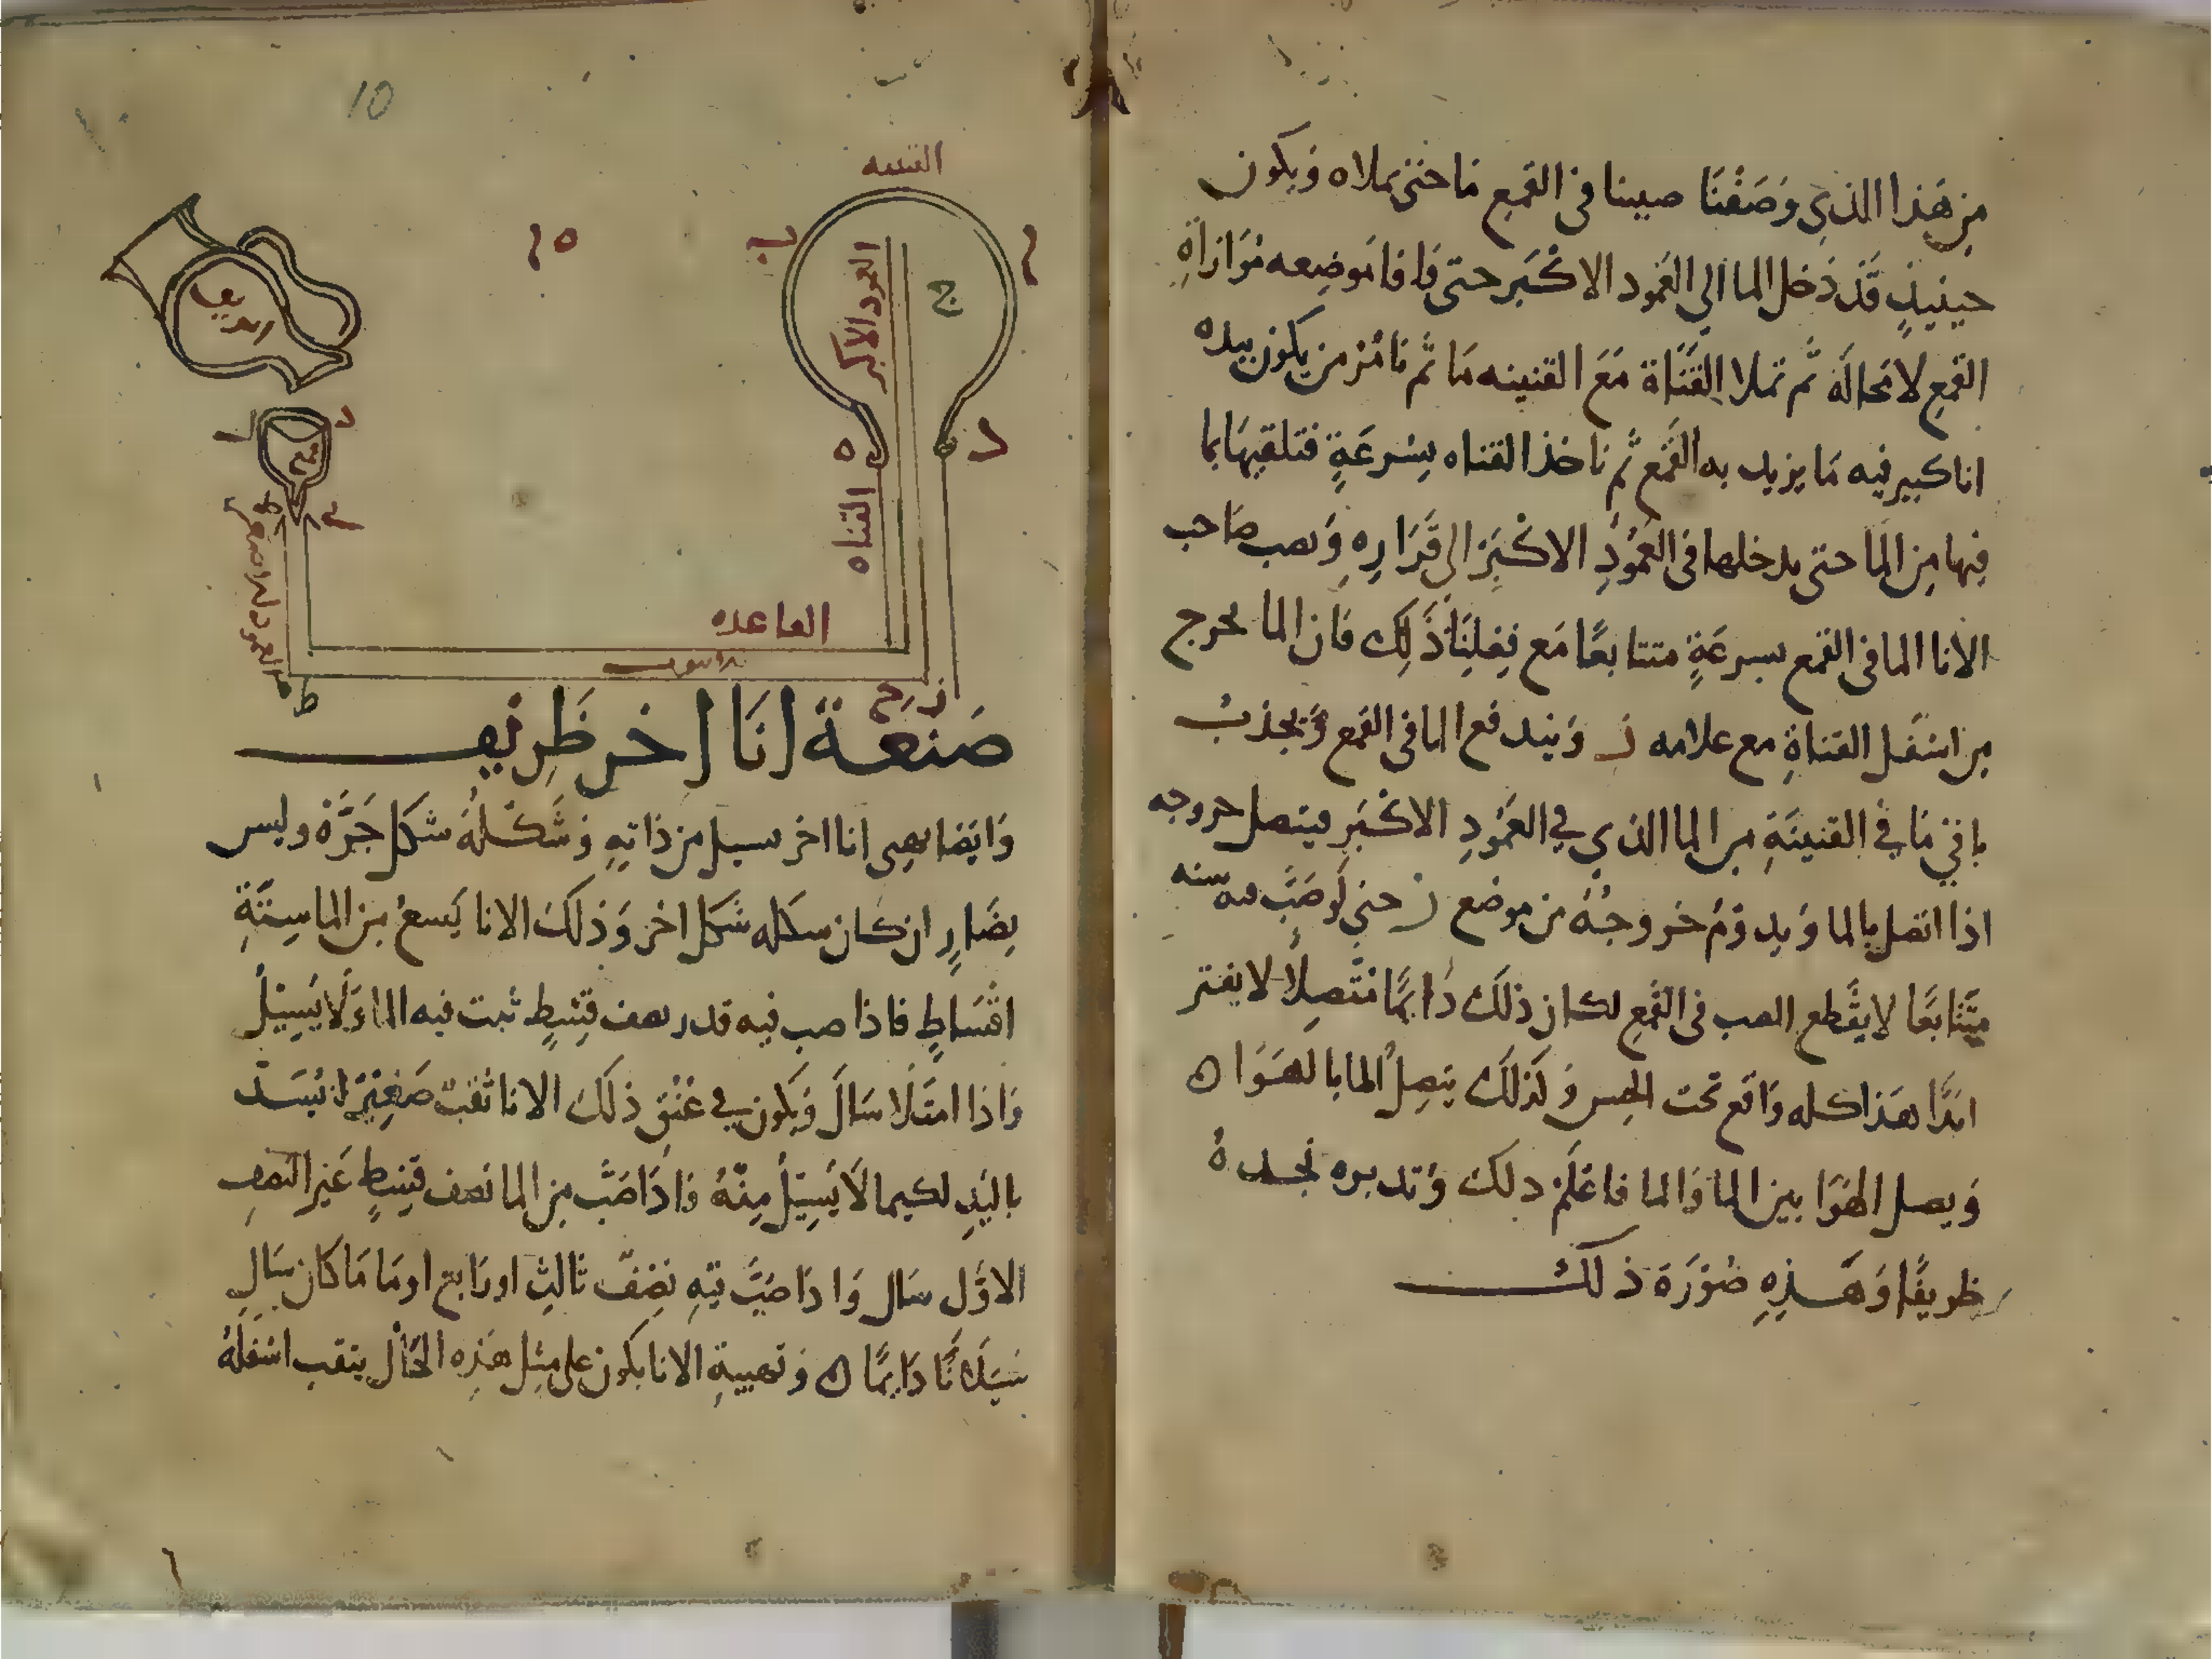 من هذا الذي وصفنا صببنا في القمع ما حتى يملاه ويكون
حينيذ قد دخل الما الي العمود الاكبر حتى وافا موضعه موازاه
القمع لا محالة ثم تملا القناة مع القنينه ما ثم تامر من يكون بيده
انا كبير فيه ما يزيد به القمع ثم تاخذ القناه بسرعة فتلقيها بما
فيها من الما حتى يدخلها في العمود الاكبر الى قراره ويصب صاحب
الانا الما في القمع بسرعة متتابعا مع فعلنا ذلك فان الما يخرج
من اسفل القناة مع علامه ز ويندفع الما في القمع ويجذب
باقي ما في القنينة من الما الذي في العمود الاكبر فيتصل خروجه
اذا اتصل بالما ويدوم خروجه من موضع ز حتى لو صب فيه سنه
متتابعا لا يقطع الصب في القمع لكان ذلك دايما متصلا لا يفتر
ابدا هذا كله واقع تحت الحس وكذلك يتصل الما بالهوا ه
ويصل الهوا بين الما والما فاعلم ذلك وتدبره تجده
ظريفا وهذه صورة ذلك
10
ب
ج
العمود الاكبر
ابريق
د
ه
القناه
القاعده
ز
ح
ط
صنعة انا اخر ظريف
وايضا انا اخر يسيل من ذاته وشكله شكل جرة وليس
بضار ان كان شكله شكل اخر وذلك الانا يسع من الما ستة
اقساط فاذا صب فيه قدر نصف قسط ثبت فيه الما ولا يسيل
واذا امتلا سال ويكون في عنق ذلك الانا ثقب صغير يسد
باليد لكيما لا يسيل منه واذا صب من الما نصف قسط غير النصف
الاول سال واذا صب فيه نصف ثالث او رابع او ما ما كان سال
سيلانا دايما ه وتهيية الانا يكون على مثل هذه الحال يثقب اسفله